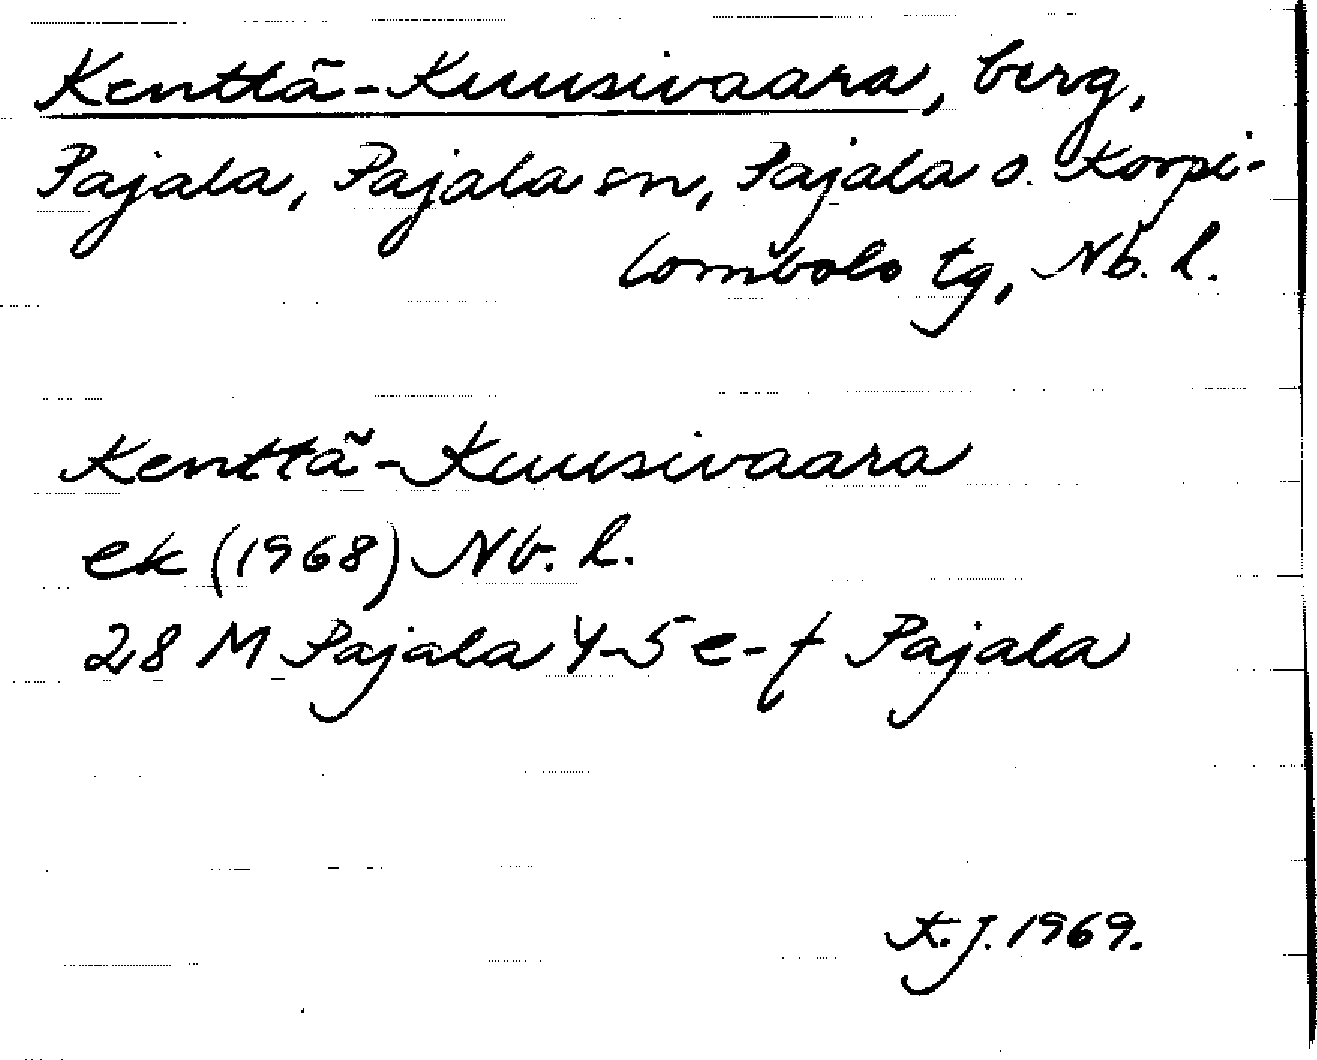 Kenttä-Kuusivaara, berg,
Pajala, Pajala sn, Pajala o. Korpi-
lombolo tg, Nb. l.
Kenttä-Kuusivaara
ek (1968) Nb. l.
28 M Pajala 4-5 e-f Pajala
K.J. 1969.